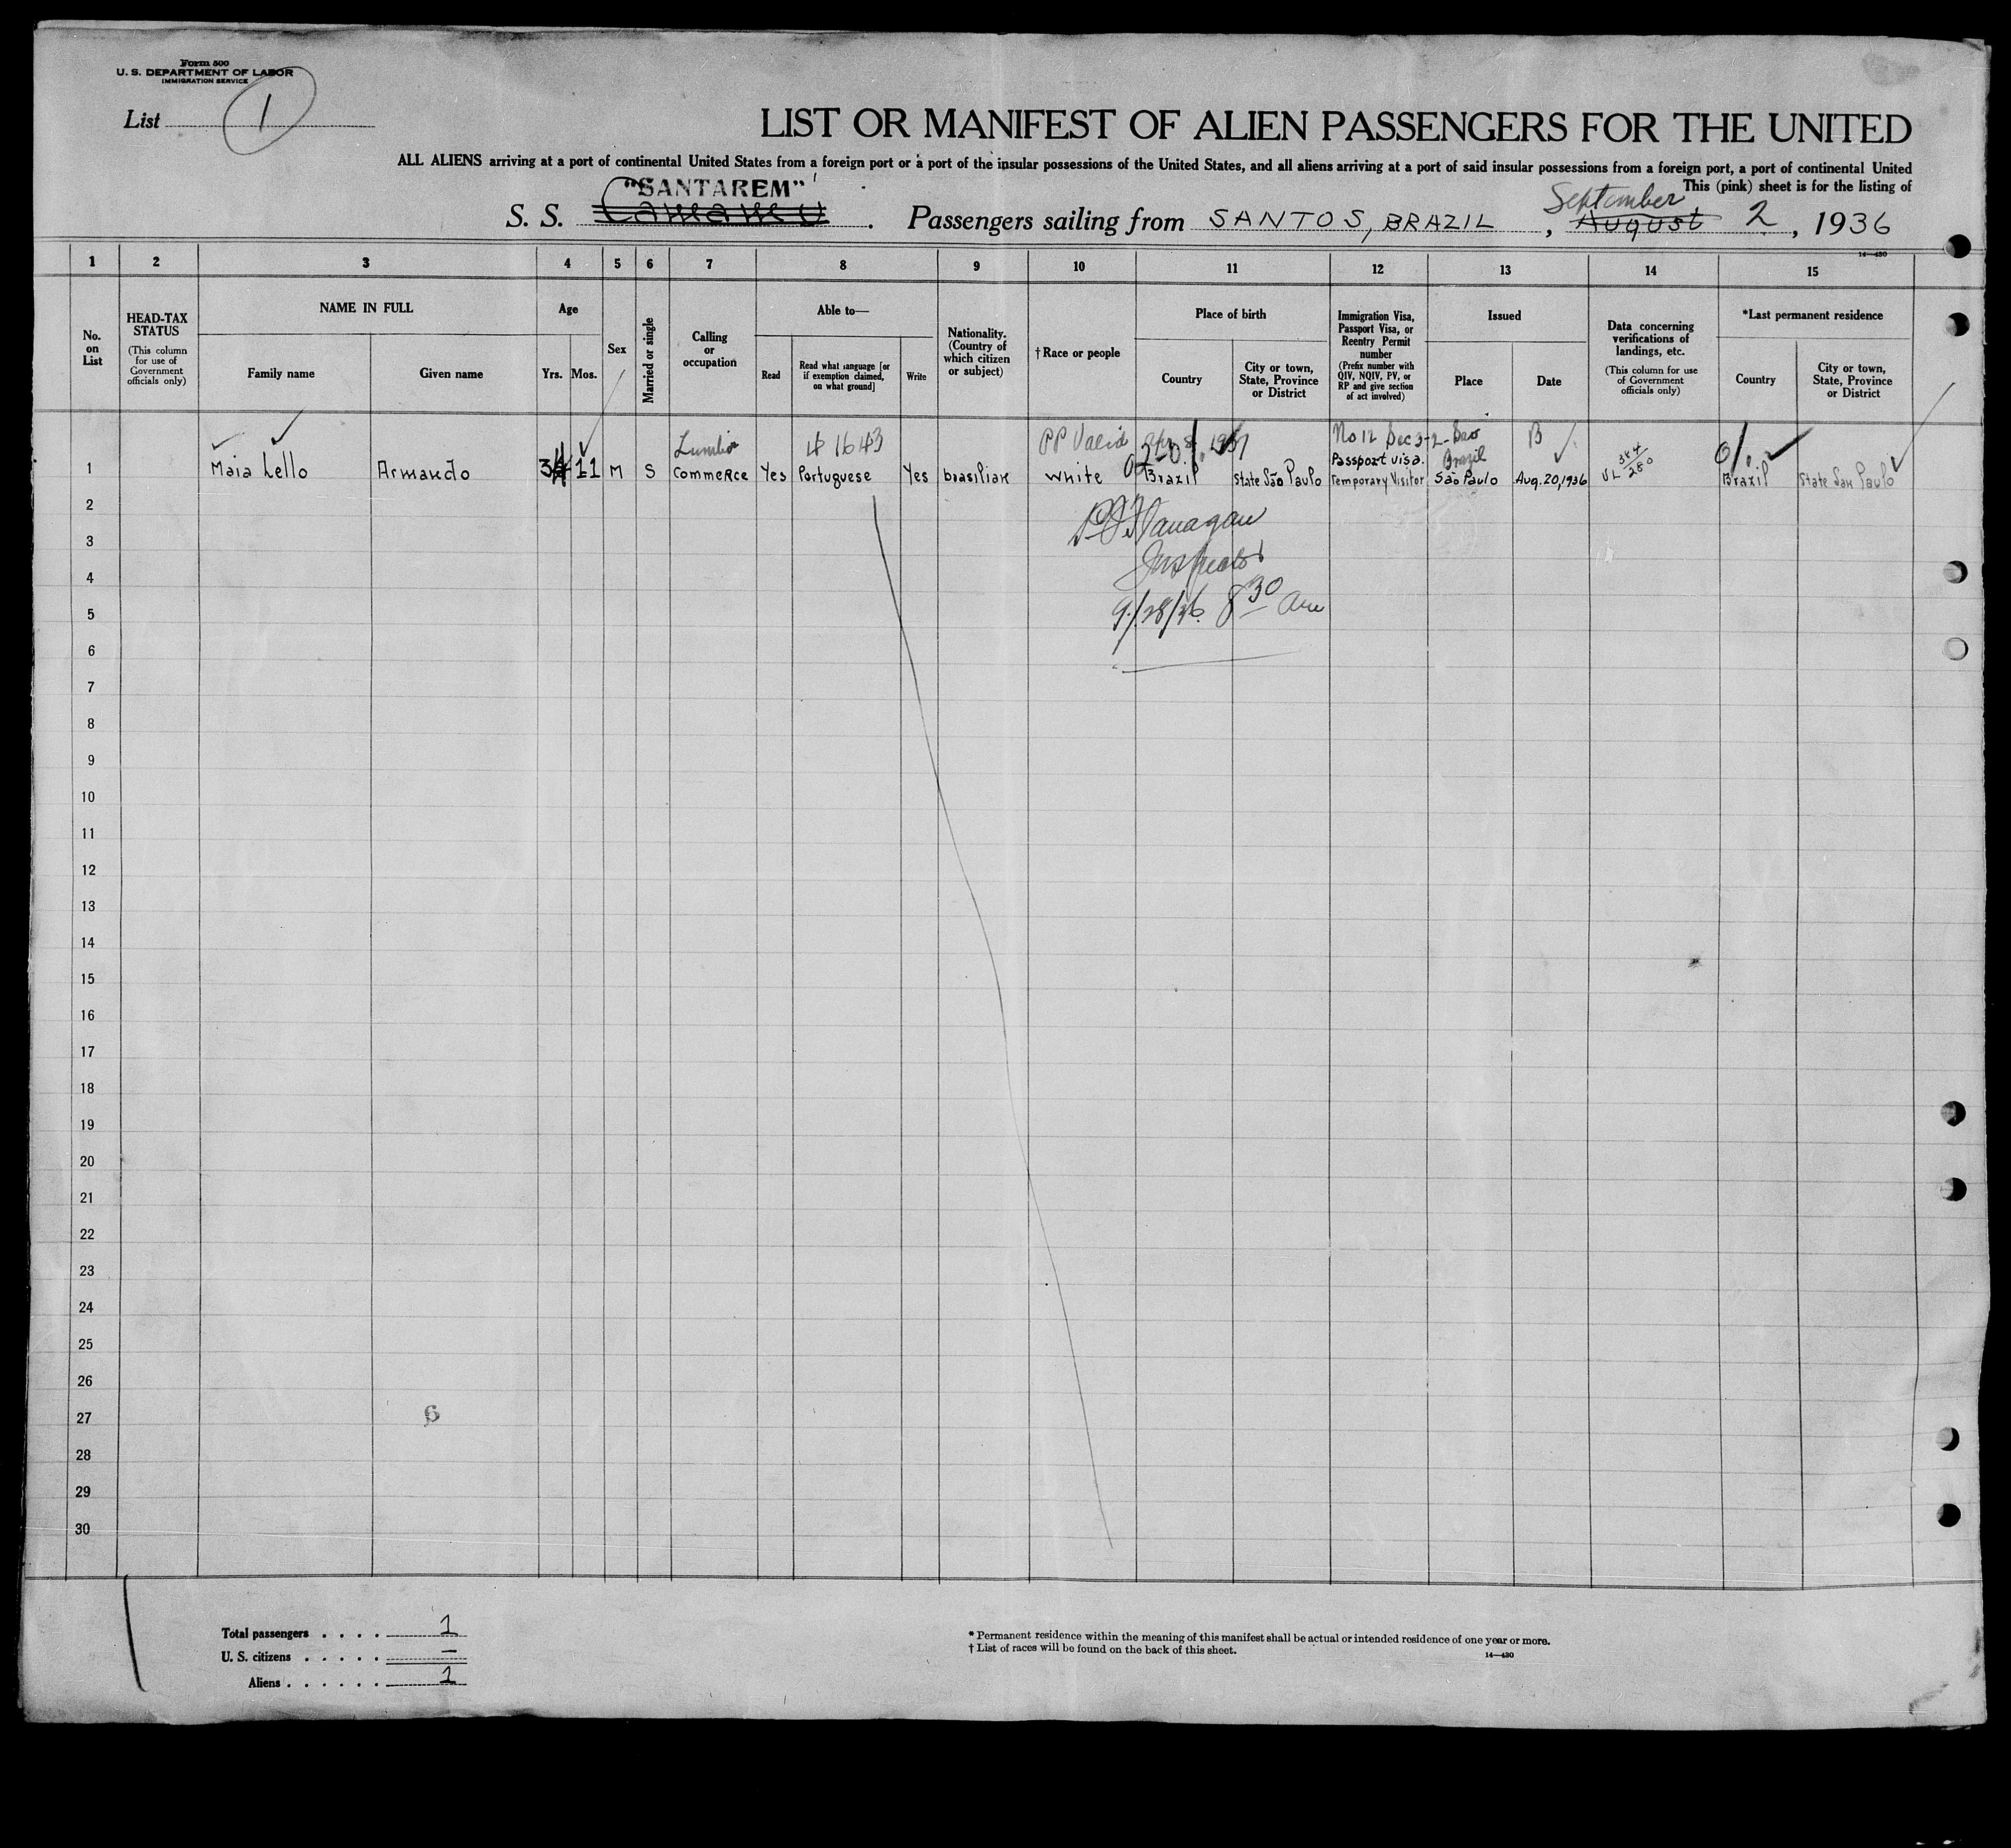 Form 500
U. S. DEPARTMENT OF LABOR
IMMIGRATION SERVICE
List 1
LIST OR MANIFEST OF ALIEN PASSENGERS FOR THE UNITED
ALL ALIENS arriving at a port of continental United States from a foreign port or a port of the insular possessions of the United States, and all aliens arriving at a port of said insular possessions from a foreign port, a port of continental United
This (pink) sheet is for the listing of
"SANTAREM"
September
S. S. Passengers sailing from SANTOS, BRAZIL, August 2, 1936
14—430
1 2 3 4 5 6 7 8 9 10 11 12 13 14 15
No. on List
HEAD-TAX STATUS
(This column for use of Government officials only)
NAME IN FULL
Family name
Given name
Age
Yrs. Mos.
Sex
Married or single
Calling or occupation
Able to—
Read
Read what language [or if exemption claimed, on what ground]
Write
Nationality. (Country of which citizen or subject)
† Race or people
Place of birth
Country
City or town, State, Province or District
Immigration Visa, Passport Visa, or Reentry Permit number
(Prefix number with QIV, NQIV, PV, or RP and give section of act involved)
Issued
Place
Date
Data concerning verifications of landings, etc.
(This column for use of Government officials only)
*Last permanent residence
Country
City or town, State, Province or District
Lumber 1643 PP Valid 1937 No 12 Sec 3-2- Sao Brazil B
1 Maia Lello Armando 3 11 M S Commerce Yes Portuguese Yes brasilian White Brazil State São Paulo Passport visa. Temporary Visitor São Paulo Aug. 20, 1936 VL 384/280 Brazil State San Paulo
2
Flanagan
3
Inspector
4
9/28/36 8 30 am
5
6
7
8
9
10
11
12
13
14
15
16
17
18
19
20
21
22
23
24
25
26
27
6
28
29
30
Total passengers . . . . 1
U. S. citizens . . . . . —
Aliens . . . . . . 1
* Permanent residence within the meaning of this manifest shall be actual or intended residence of one year or more.
† List of races will be found on the back of this sheet.
14—430